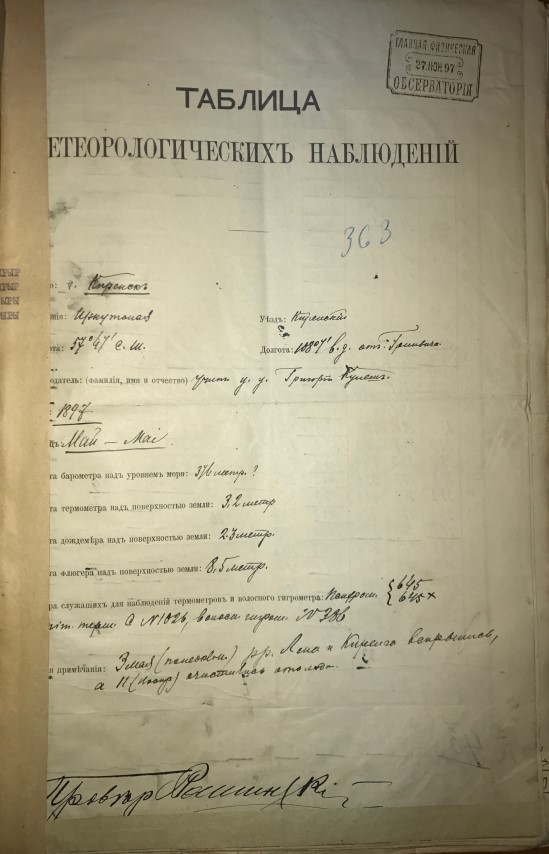 ГЛАВНАЯ ФИЗИЧЕСКАЯ
27.ІЮН.97
ОБСЕРВАТОРІЯ
ТАБЛИЦА
ЕТЕОРОЛОГИЧЕСКИХЪ НАБЛЮДЕНІЙ
363
о: г. Киренскъ
нія: Иркутская Уѣздъ: Киренскій
та: 57°47' с. ш. Долгота: 108°7' в. д. отъ Гринвича
юдатель: (фамилія, имя и отчество) Григорій
: 1897
цъ: Май — Mai
та барометра надъ уровнемъ моря: метр. ?
та термометра надъ поверхностью земли: 3.2 метр
та дождемѣра надъ поверхностью земли: 2.3 метр.
та флюгера надъ поверхностью земли: 8.5 метр.
ра служащихъ для наблюденій термометровъ и волосного гигрометра: Психром. { 645
645*
терм. С № 1026, волосн. гигром. №
я примѣчанія: 3 мая рр. Лена и Киренга вскрылись,
а 11 очистились отъ льда.